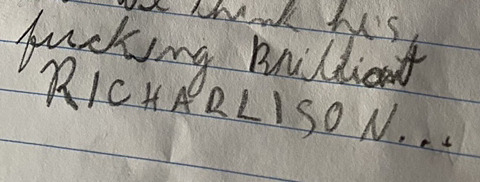 we think he's,
fucking Brilliant
RICHARLISON...